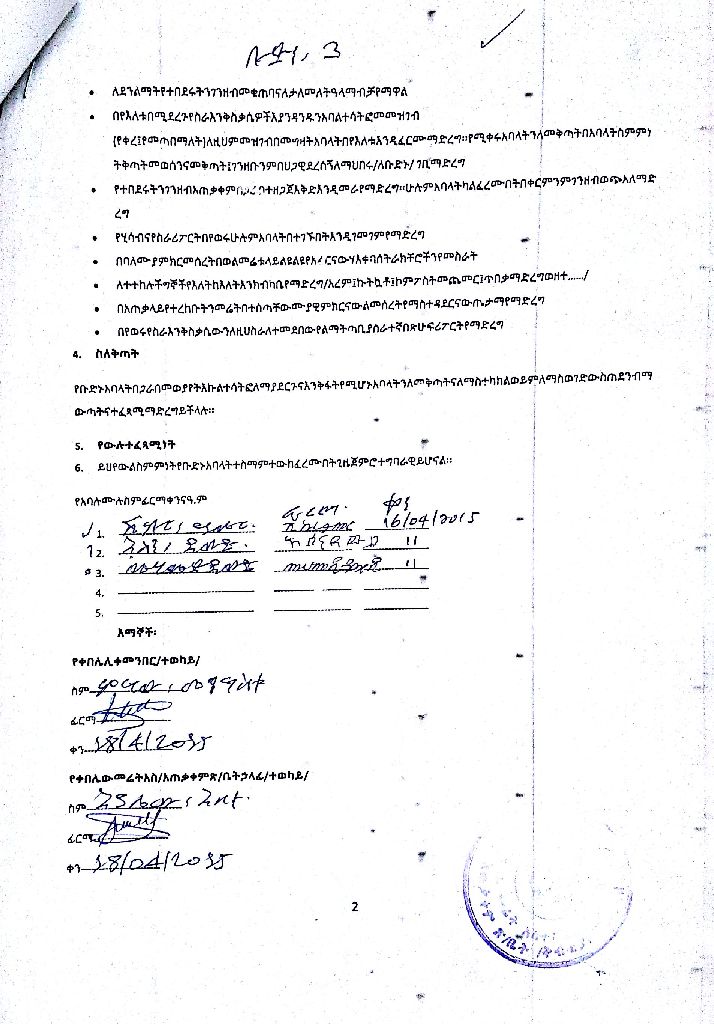 3
• ለደንልማትየተበደሩትንገንዘብመቁጠባናለታለመለትዓላማብቻየማዋል
• በየእለቱበሚደረጉየስራእንቅስቃሴዎችእያንዳንዱንአባልተሳትፎመመዝገብ
(የቀረ፤የመጣበማለት)ለዚህምመዝገብበመግዛትአባላትበየእለቱእንዲፈርሙማድረግ።የሚቀሩአባላትንለመቅጣትበአባላትስምምነ
ትቅጣትመወሰንናመቅጣት፤ገንዘቡንምበህጋዊደረሰኝለማህበሩ/ለቡድኑ/ ገቢማድረግ
• የተበደሩትንገንዘብአጠቃቀምበጋራበተዘጋጀእቅድእንዲመራየማድረግ።ሁሉምአባላትካልፈረሙበትበቀርምንምገንዘብወጭአለማድ
ረግ
• የሂሳብናየስራሪፖርትበየወሩሁሉምአባላትበተገኙበትእንዲገመገምየማድረግ
• በባለሙያምክርመሰረትበወልመሬቱላይልዩልዩየአፈርናውሃእቀባስትራክቸሮችንየመስራት
• ለተተከሉችግኞችየእለትከእለትእንክብካቤየማድረግ/አረም፤ኩትኳቶ፤ኮምፖስትመጨመር፤ጥበቃማድረግወዘተ....../
• በአጠቃላይየተረከቡትንመሬትበተሰጣቸውሙያዊምክርናውልመሰረትየማስተዳደርናውጤታማየማድረግ
• በየወሩየስራእንቅስቃሴውንለዚህስራለተመደበውየልማትጣቢያሰራተኛበጽሁፍሪፖርትየማድረግ
4. ስለቅጣት
የቡድኑአባላትበጋራበመወያየትእኩልተሳትፎለማያደርጉናእንቅፋትየሚሆኑአባላትንለመቅጣትናለማስተካከልወይምለማስወገድውስጠደንብማ
ውጣትናተፈጻሚማድረግይችላሉ።
5. የውሉተፈጻሚነት
6. ይህየውልስምምነትየቡድኑአባላትተስማምተውከፈረሙበትጊዜጀምሮተግባራዊይሆናል።
የአባሉሙሉስምፊርማቀንናዓ.ም
ፊርማ ቀን
1. 16/04/2015
2. 11
3. 11
4.
5.
እማኞች፡
የቀበሌሊቀመንበር/ተወካይ/
ስም
ፊርማ
ቀን 28/4/2015
የቀበሌውመሬትአስ/አጠቃቀምጽ/ቤትኃላፊ/ተወካይ/
ስም
ፊርማ
ቀን 28/04/2015
2